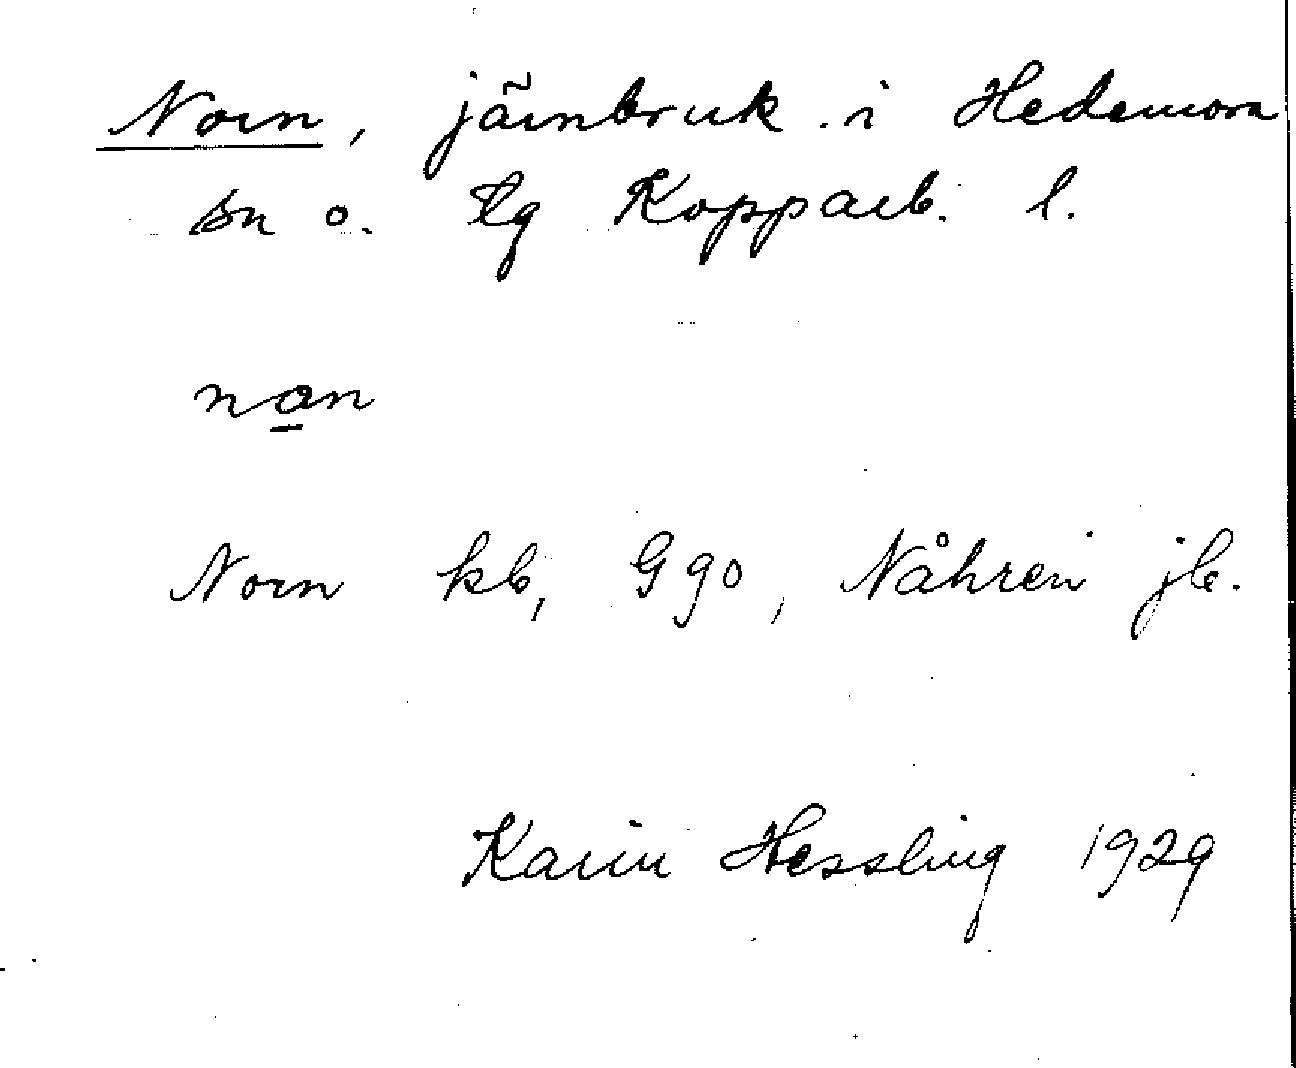 Norn, järnbruk i Hedemora
sn o. tg Kopparb. l.
nan
Norn kb, G 90, Nåhren jb.
Karin Hessling 1929